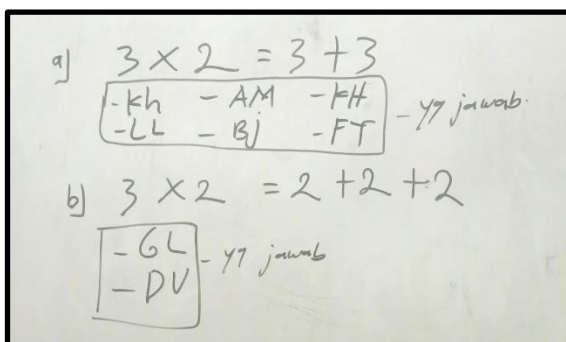 a) 3 × 2 = 3 + 3
- Kh - AM - KH
- LL - Bj - FT
- yg jawab.
b) 3 × 2 = 2 + 2 + 2
- GL
- DV
- yg jawab